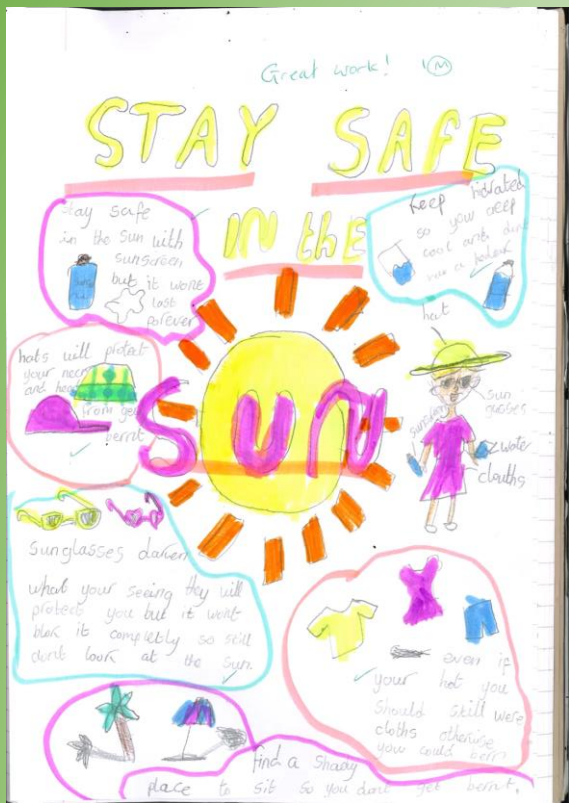 Great work!
STAY SAFE
IN the
SUN
Stay safe
in the sun with
sunscreen
but it wont
last
forever
keep hidrated
so your creep
cool and dont
hats will protect
your neck
and head
from get
bernt
hat
sun
glasses
water
clouths
sunglasses darken
what your seeing they will
protect you but it wont
blok it completly so still
dont look at the sun
even if
your hot you
should still were
cloths otherwise
you could bern
find a shady
place to sit so you dont get bernt.